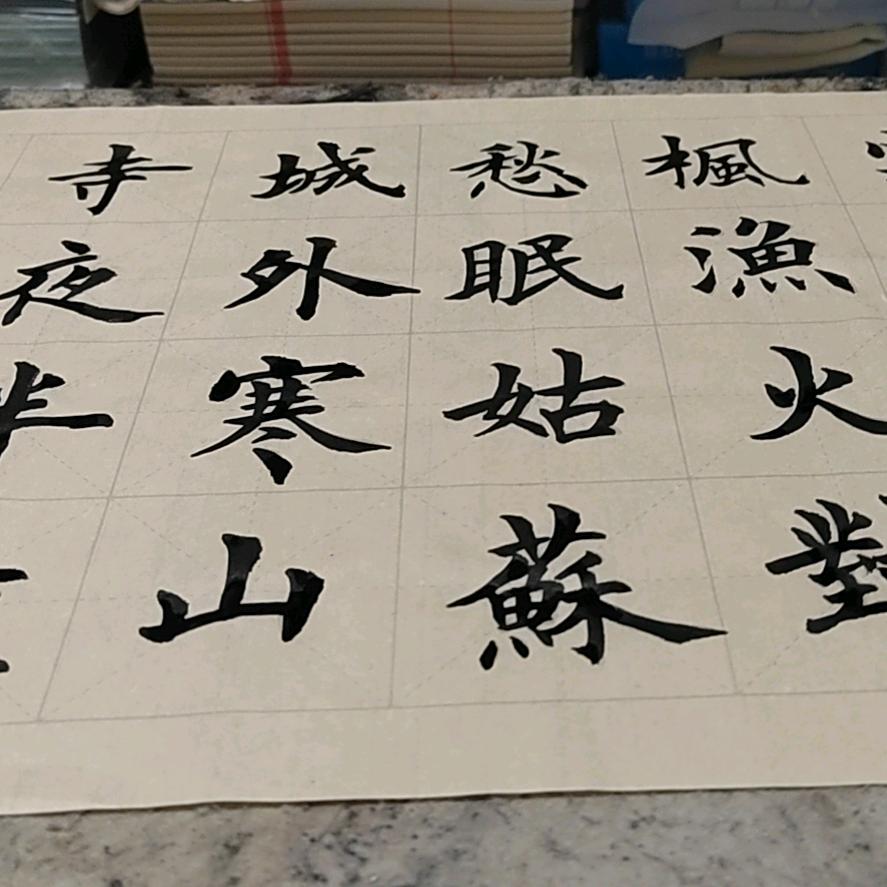 楓漁火對
愁眠姑蘇
城外寒山
寺夜半